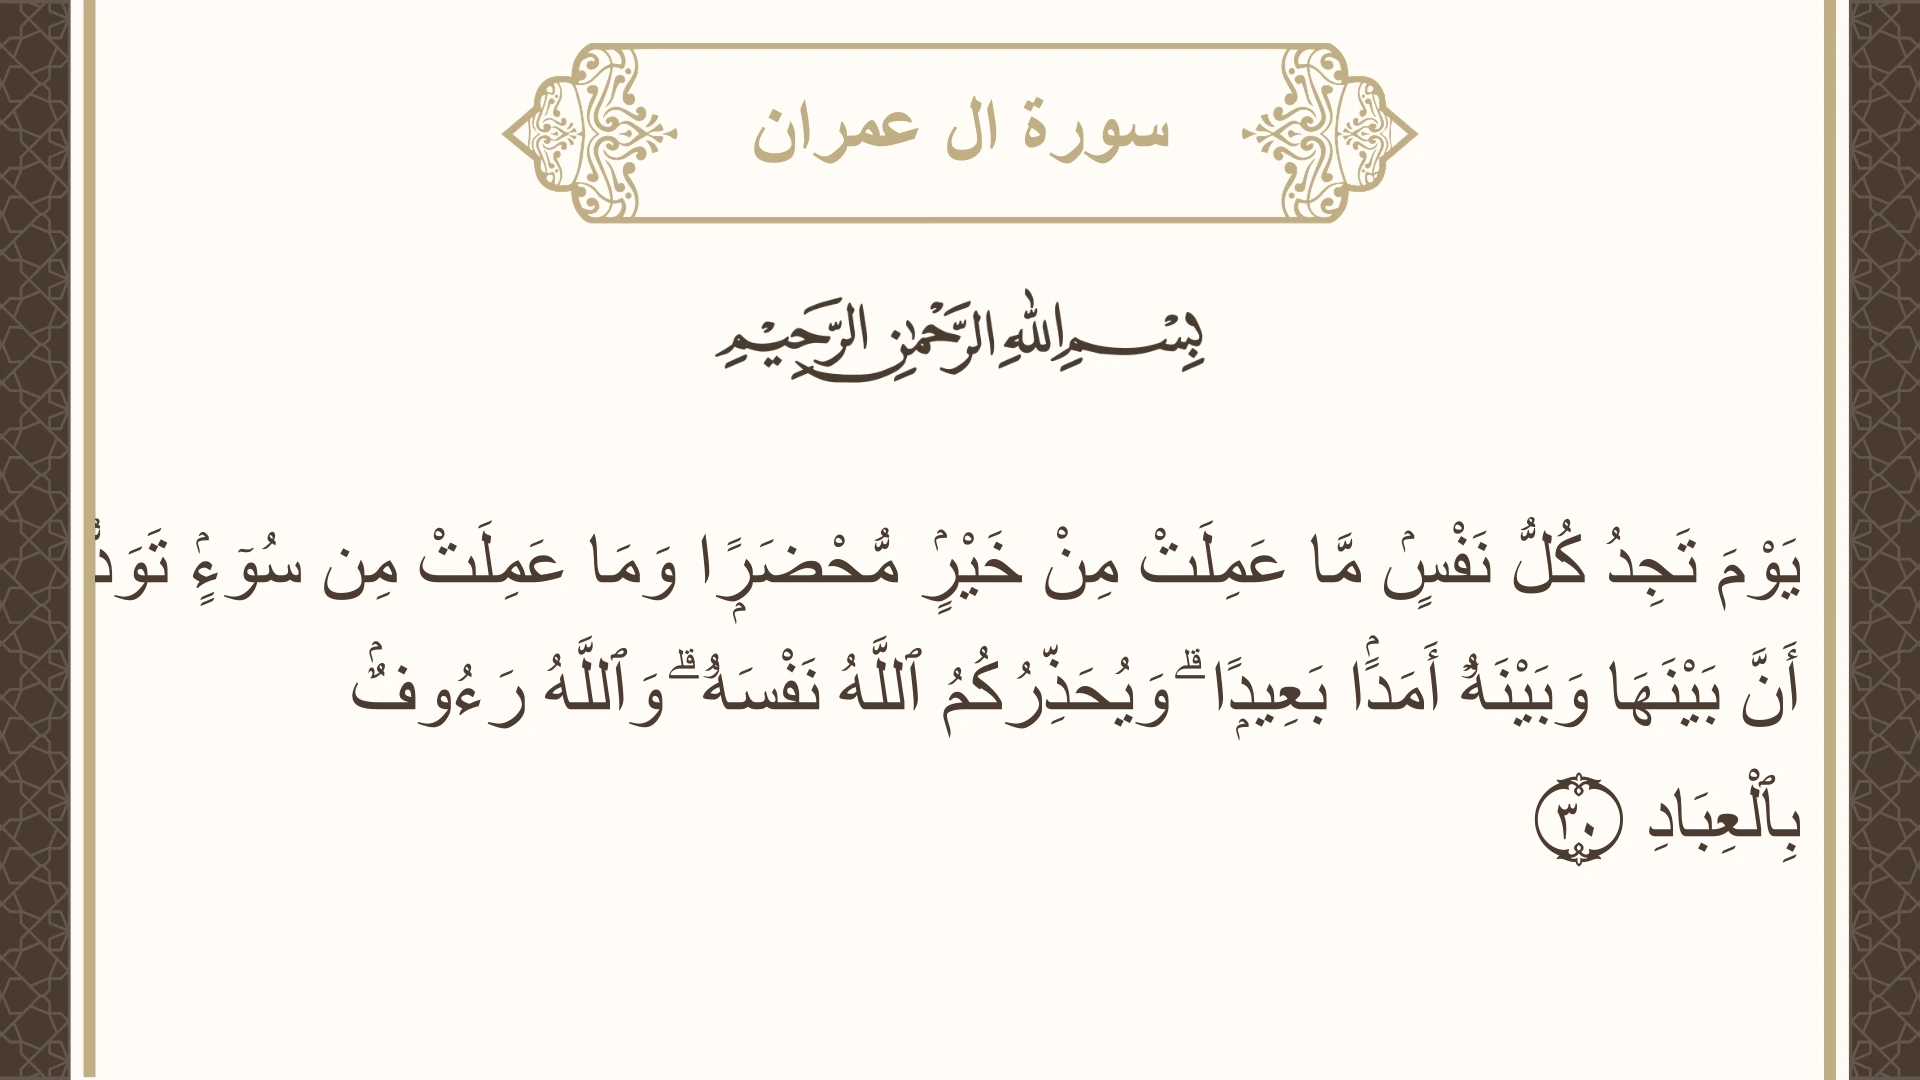 سورة ال عمران
بِسْمِ اللهِ الرَّحْمٰنِ الرَّحِيْمِ
يَوْمَ تَجِدُ كُلُّ نَفْسٍۢ مَّا عَمِلَتْ مِنْ خَيْرٍۢ مُّحْضَرًۭا وَمَا عَمِلَتْ مِن سُوٓءٍۢ تَوَدُّ
أَنَّ بَيْنَهَا وَبَيْنَهُۥٓ أَمَدًۢا بَعِيدًۭا ۗ وَيُحَذِّرُكُمُ ٱللَّهُ نَفْسَهُۥ ۗ وَٱللَّهُ رَءُوفٌۢ
بِٱلْعِبَادِ ٣٠